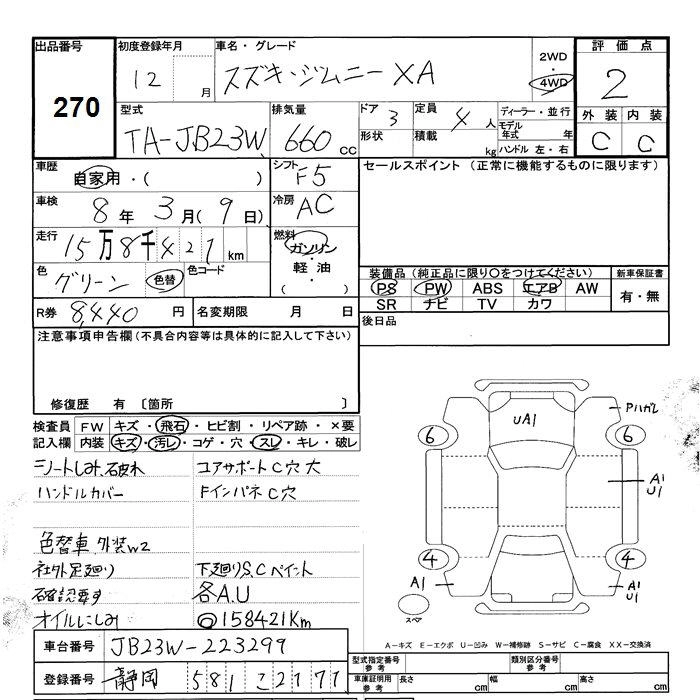 出品番号
270
初度登録年月
12 月
車名・グレード
スズキ・ジムニー XA
2WD
・
4WD
評価点
2
外装 内装
C C
型式
TA-JB23W
排気量
660 cc
ドア 3
形状
定員 4 人
積載 kg
ディーラー・並行
モデル
年式 年
ハンドル 左・右
車歴
自家用・( )
シフト F5
車検
8 年 3 月( 9 日)
冷房 AC
走行
15 万 8 千 421 km
燃料
ガソリン
・
軽油
( )
色
グリーン 色替
色コード
R券 8,440 円
名変期限 月 日
セールスポイント (正常に機能するものに限ります)
装備品(純正品に限り○をつけてください)
PS PW ABS エアB AW
SR ナビ TV カワ
新車保証書
有・無
後日品
注意事項申告欄(不具合内容等は具体的に記入して下さい)
修復歴 有 〔箇所 〕
検査員 FW キズ・飛石・ヒビ割・リペア跡・×要
記入欄 内装 キズ・汚レ・コゲ・穴・スレ・キレ・破レ
シートしみ、破れ コアサポートC穴大
ハンドルカバー Fインパネ C穴
色替車 外装W2
社外足廻り 下廻りS,C ペイント
確認要す 各A.U
オイルにじみ ◎158421Km
UA1
Pハガレ
6
6
A1
U1
4
4
A1
A1
U1
スペア
A−キズ E−エクボ U−凹み W−補修跡 S−サビ C−腐食 XX−交換済
車台番号 JB23W-223299
登録番号 静岡 581 こ 2171
型式指定番号
参考
類別区分番号
参考
車庫証明用
参考
長さ cm 幅 cm 高さ cm